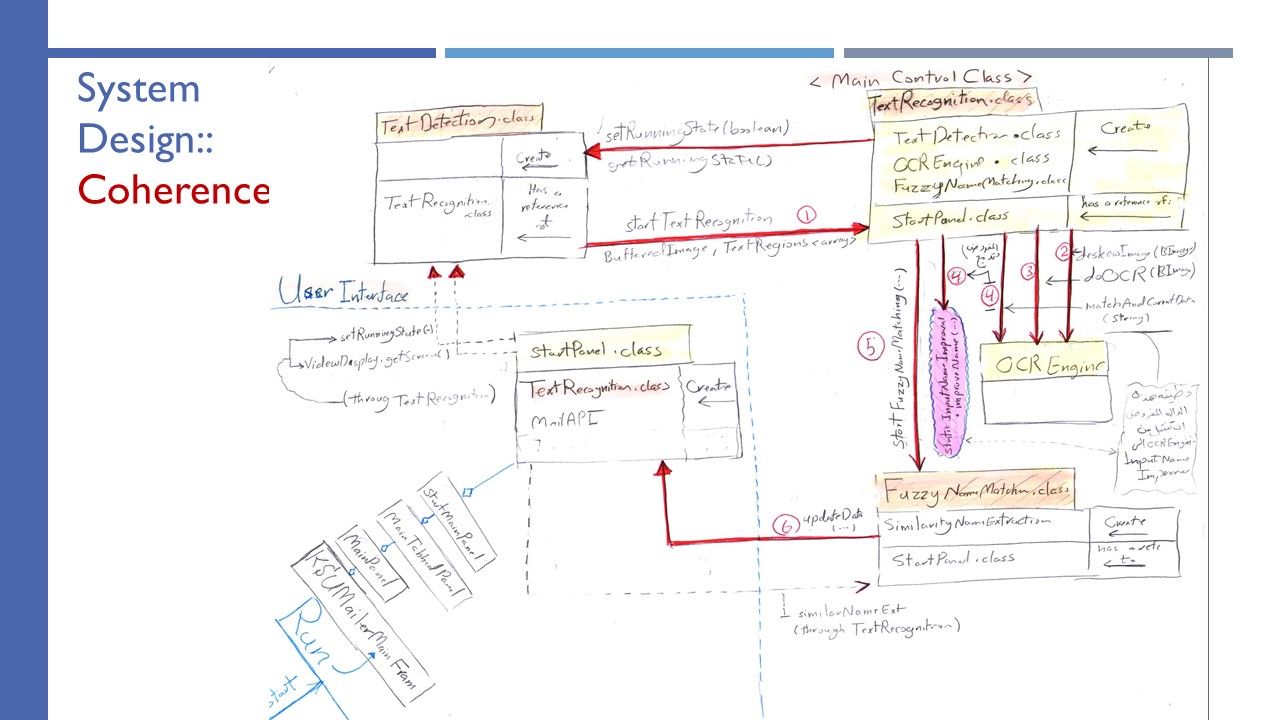 System
Design::
Coherence
< Main Control Class >
TextRecognition.class
TextDetection.class
OCREngine.class
FuzzyNameMatching.class
Create
StartPanel.class
has a reference of:
TextDetection.class
Create
TextRecognition
.class
Has a
reference
of
setRunningState(boolean)
getRunningState()
startTextRecognition ①
BufferedImage, TextRegions<array>
② deskewImage(BImage)
③ doOCR(BImage)
④
④
matchAndCorrectData
(String)
User Interface
setRunningState(-)
VideoDisplay.getScreen()
(throug TextRecognition)
StartPanel.class
TextRecognition.class
MailAPI
?
Create
⑤
Start FuzzyNameMatching(...)
Static InputNameImprovor
• improveName(...)
OCR Engine
OCREngine
InputName
Improver
FuzzyNameMatcher.class
SimilarityNameExtraction
Create
StartPanel.class
has a refe
to
⑥ updateData
(...)
similarNameExt
(through TextRecognition)
StartMainPanel
MainTabbedPanel
MainPanel
KSUMailerMainFram
Run
start